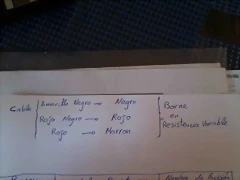 Cable Amarillo Negro → Negro
Rojo Negro → Rojo
Rojo → Marron
Borne
en
Resistencia Variable